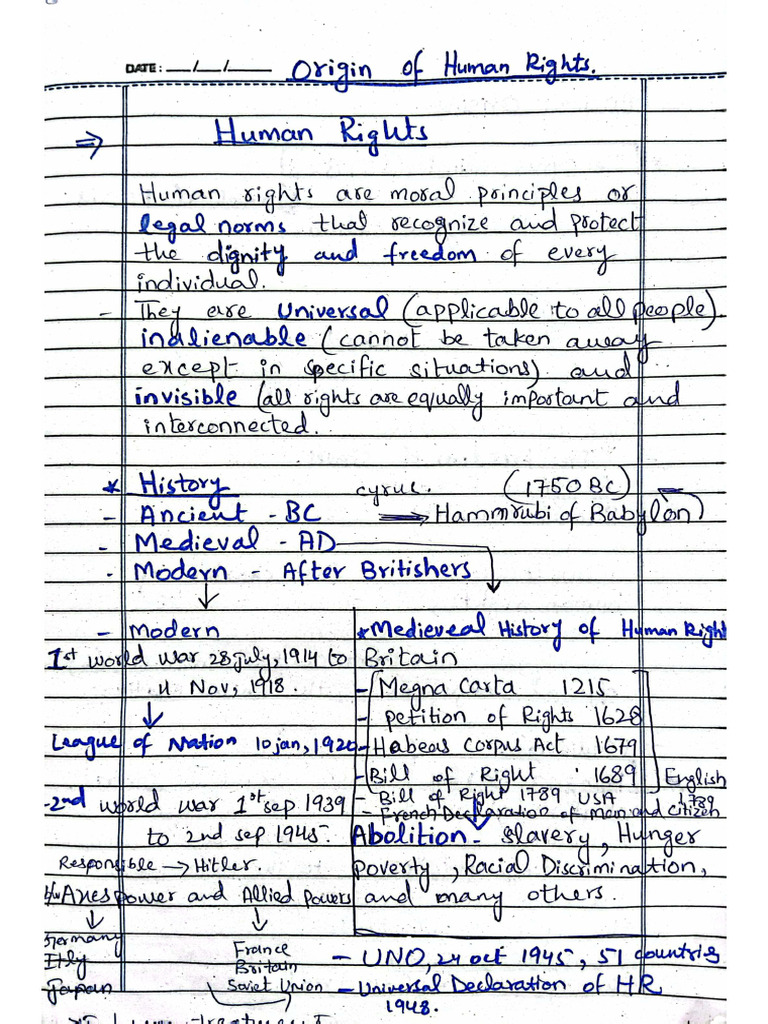 DATE: __/__/__
Origin of Human Rights.
⇒ Human Rights
Human rights are moral principles or
legal norms that recognize and protect
the dignity and freedom of every
individual.
- They are Universal (applicable to all people)
inalienable (cannot be taken away
except in specific situations) and
invisible (all rights are equally important and
interconnected.
* History
cyrus. (1750 BC)
- Ancient - BC → Hammrubi of Babylon)
- Medieval - AD
- Modern - After Britishers
- Modern
1st world war 28 July, 1914 to
11 Nov, 1918.
League of Nation 10 jan, 1920
- 2nd world war 1st sep 1939
to 2nd sep 1945.
Responsible → Hitler.
b/w Axes power and Allied Powers
Germany
Itly
Japan
France
Britain
Soviet Union
* Medieveal History of Human Right
Britain
- Megna Carta 1215
- Petition of Rights 1628
- Habeas Corpus Act 1679
- Bill of Right 1689 English
- Bill of Right 1789 USA
- French Declaration of man and Citizen 1789
Abolition - Slavery, Hunger
Poverty, Racial Discrimination,
and many others.
- UNO, 24 oct 1945, 51 countries
- Universal Declaration of HR
1948.